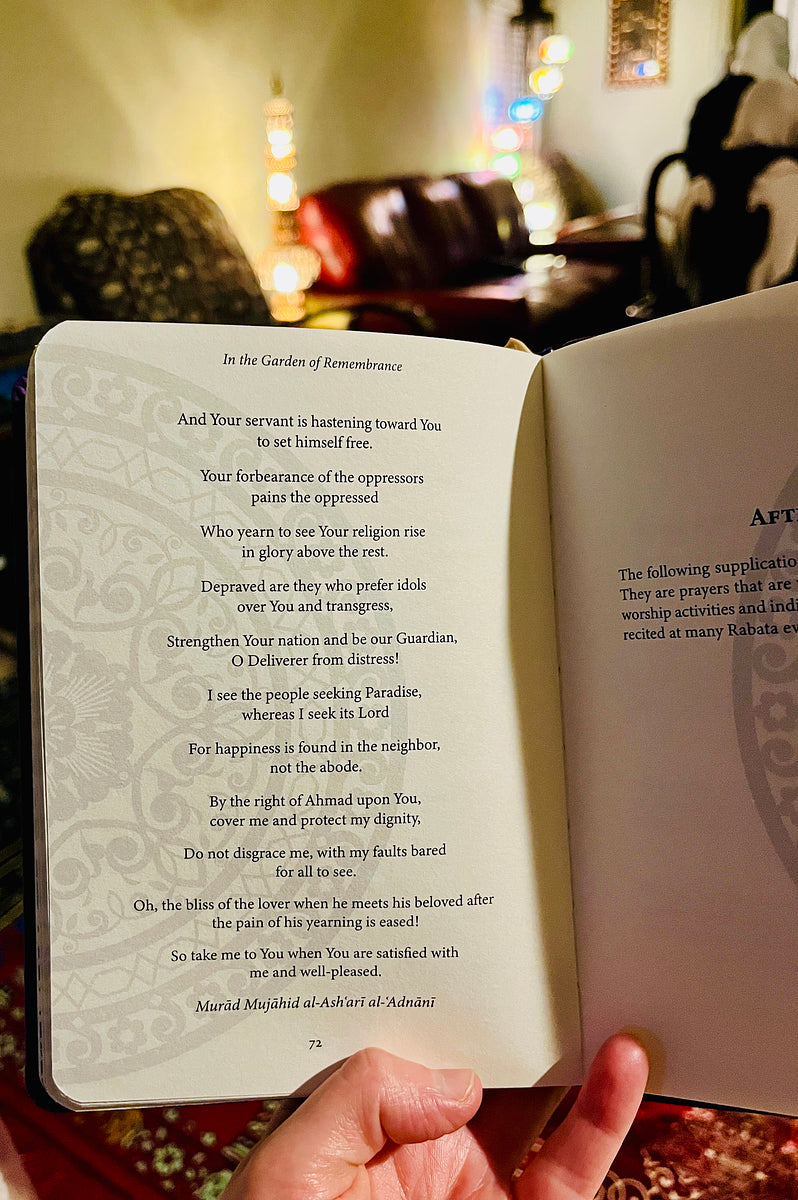 In the Garden of Remembrance
And Your servant is hastening toward You
to set himself free.
Your forbearance of the oppressors
pains the oppressed
Who yearn to see Your religion rise
in glory above the rest.
Depraved are they who prefer idols
over You and transgress,
Strengthen Your nation and be our Guardian,
O Deliverer from distress!
I see the people seeking Paradise,
whereas I seek its Lord
For happiness is found in the neighbor,
not the abode.
By the right of Ahmad upon You,
cover me and protect my dignity,
Do not disgrace me, with my faults bared
for all to see.
Oh, the bliss of the lover when he meets his beloved after
the pain of his yearning is eased!
So take me to You when You are satisfied with
me and well-pleased.
Murād Mujāhid al-Ash‘arī al-‘Adnānī
72
The following
They are prayers that are
worship activities and
recited at many Rabata